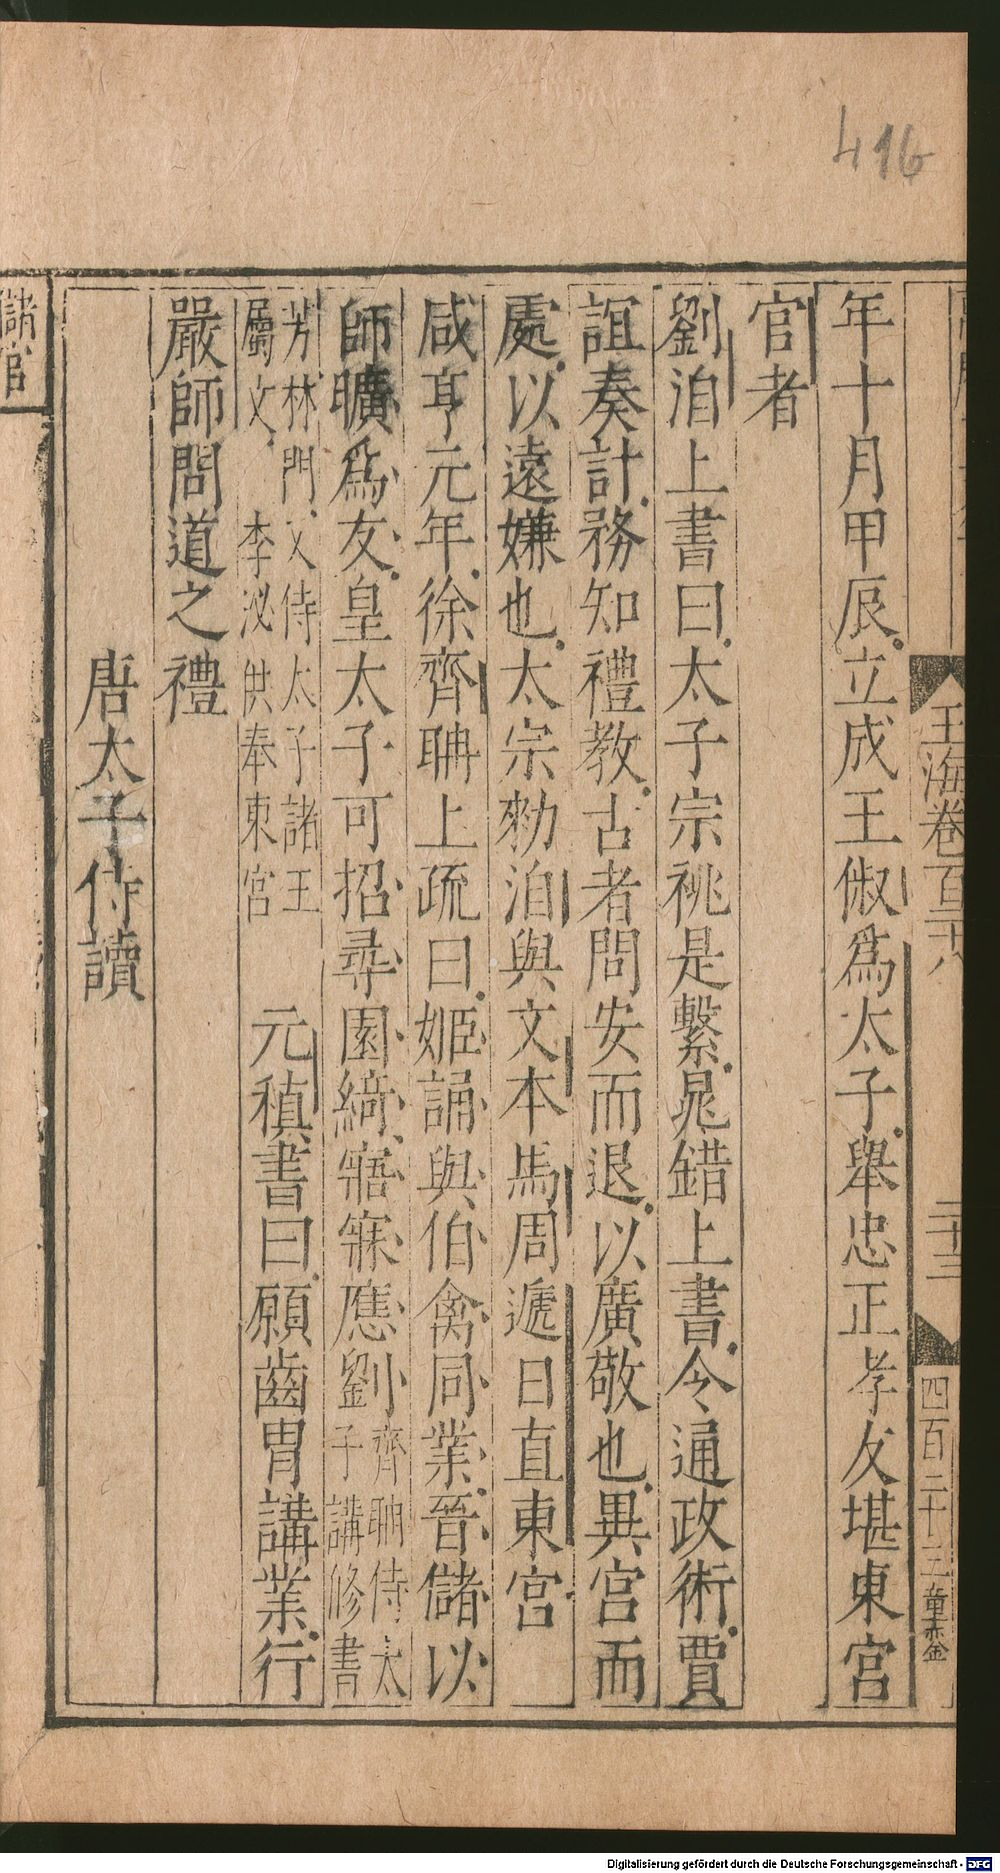 416
玉海卷百二十八
二十三
四百二十三
年十月甲辰立成王俶爲太子舉忠正孝友堪東宮
官者
劉洎上書曰太子宗祧是繫晁錯上書令通政術賈
誼奏計務知禮教古者問安而退以廣敬也異宮而
處以遠嫌也太宗勑洎與文本馬周遞日直東宮
咸亨元年徐齊聃上疏曰姬誦與伯禽同業晉儲以
師曠爲友皇太子可招尋園綺寤寐應劉齊聃侍太子講修書
芳林門又侍太子諸王屬文 李泌供奉東宮 元稹書曰願齒冑講業行
嚴師問道之禮
唐太子侍讀
儲官
Digitalisierung gefördert durch die Deutsche Forschungsgemeinschaft - DFG